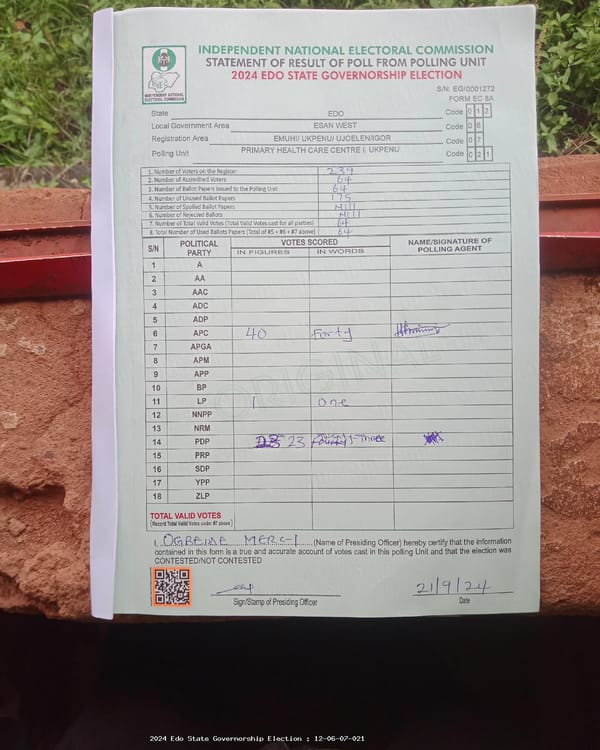 INDEPENDENT NATIONAL ELECTORAL COMMISSION
STATEMENT OF RESULT OF POLL FROM POLLING UNIT
2024 EDO STATE GOVERNORSHIP ELECTION
INDEPENDENT NATIONAL ELECTORAL COMMISSION
S/N: EG/0001272
FORM EC 8A
State EDO Code 012
Local Government Area ESAN WEST Code 06
Registration Area EMUHI/ UKPENU/ UJOELEN/IGOR Code 07
Polling Unit PRIMARY HEALTH CARE CENTRE I, UKPENU Code 021
1. Number of Voters on the Register 239
2. Number of Accredited Voters 64
3. Number of Ballot Papers Issued to the Polling Unit 64
4. Number of Unused Ballot Papers 175
5. Number of Spoiled Ballot Papers Nill
6. Number of Rejected Ballots Nill
7. Number of Total Valid Votes (Total Valid Votes cast for all parties) 64
8. Total Number of Used Ballots Papers (Total of #5 + #6 + #7 above) 64
S/N POLITICAL PARTY VOTES SCORED NAME/SIGNATURE OF POLLING AGENT
IN FIGURES IN WORDS
1 A
2 AA
3 AAC
4 ADC
5 ADP
6 APC 40 Forty
7 APGA
8 APM
9 APP
10 BP
11 LP 1 One
12 NNPP
13 NRM
14 PDP 23 Three
15 PRP
16 SDP
17 YPP
18 ZLP
ORIGINAL
TOTAL VALID VOTES
(Record Total Valid Votes under #7 above)
I, OGBEIDE MERC-I (Name of Presiding Officer) hereby certify that the information
contained in this form is a true and accurate account of votes cast in this polling Unit and that the election was
CONTESTED/NOT CONTESTED
21/9/24
Sign/Stamp of Presiding Officer Date
2024 Edo State Governorship Election : 12-06-07-021